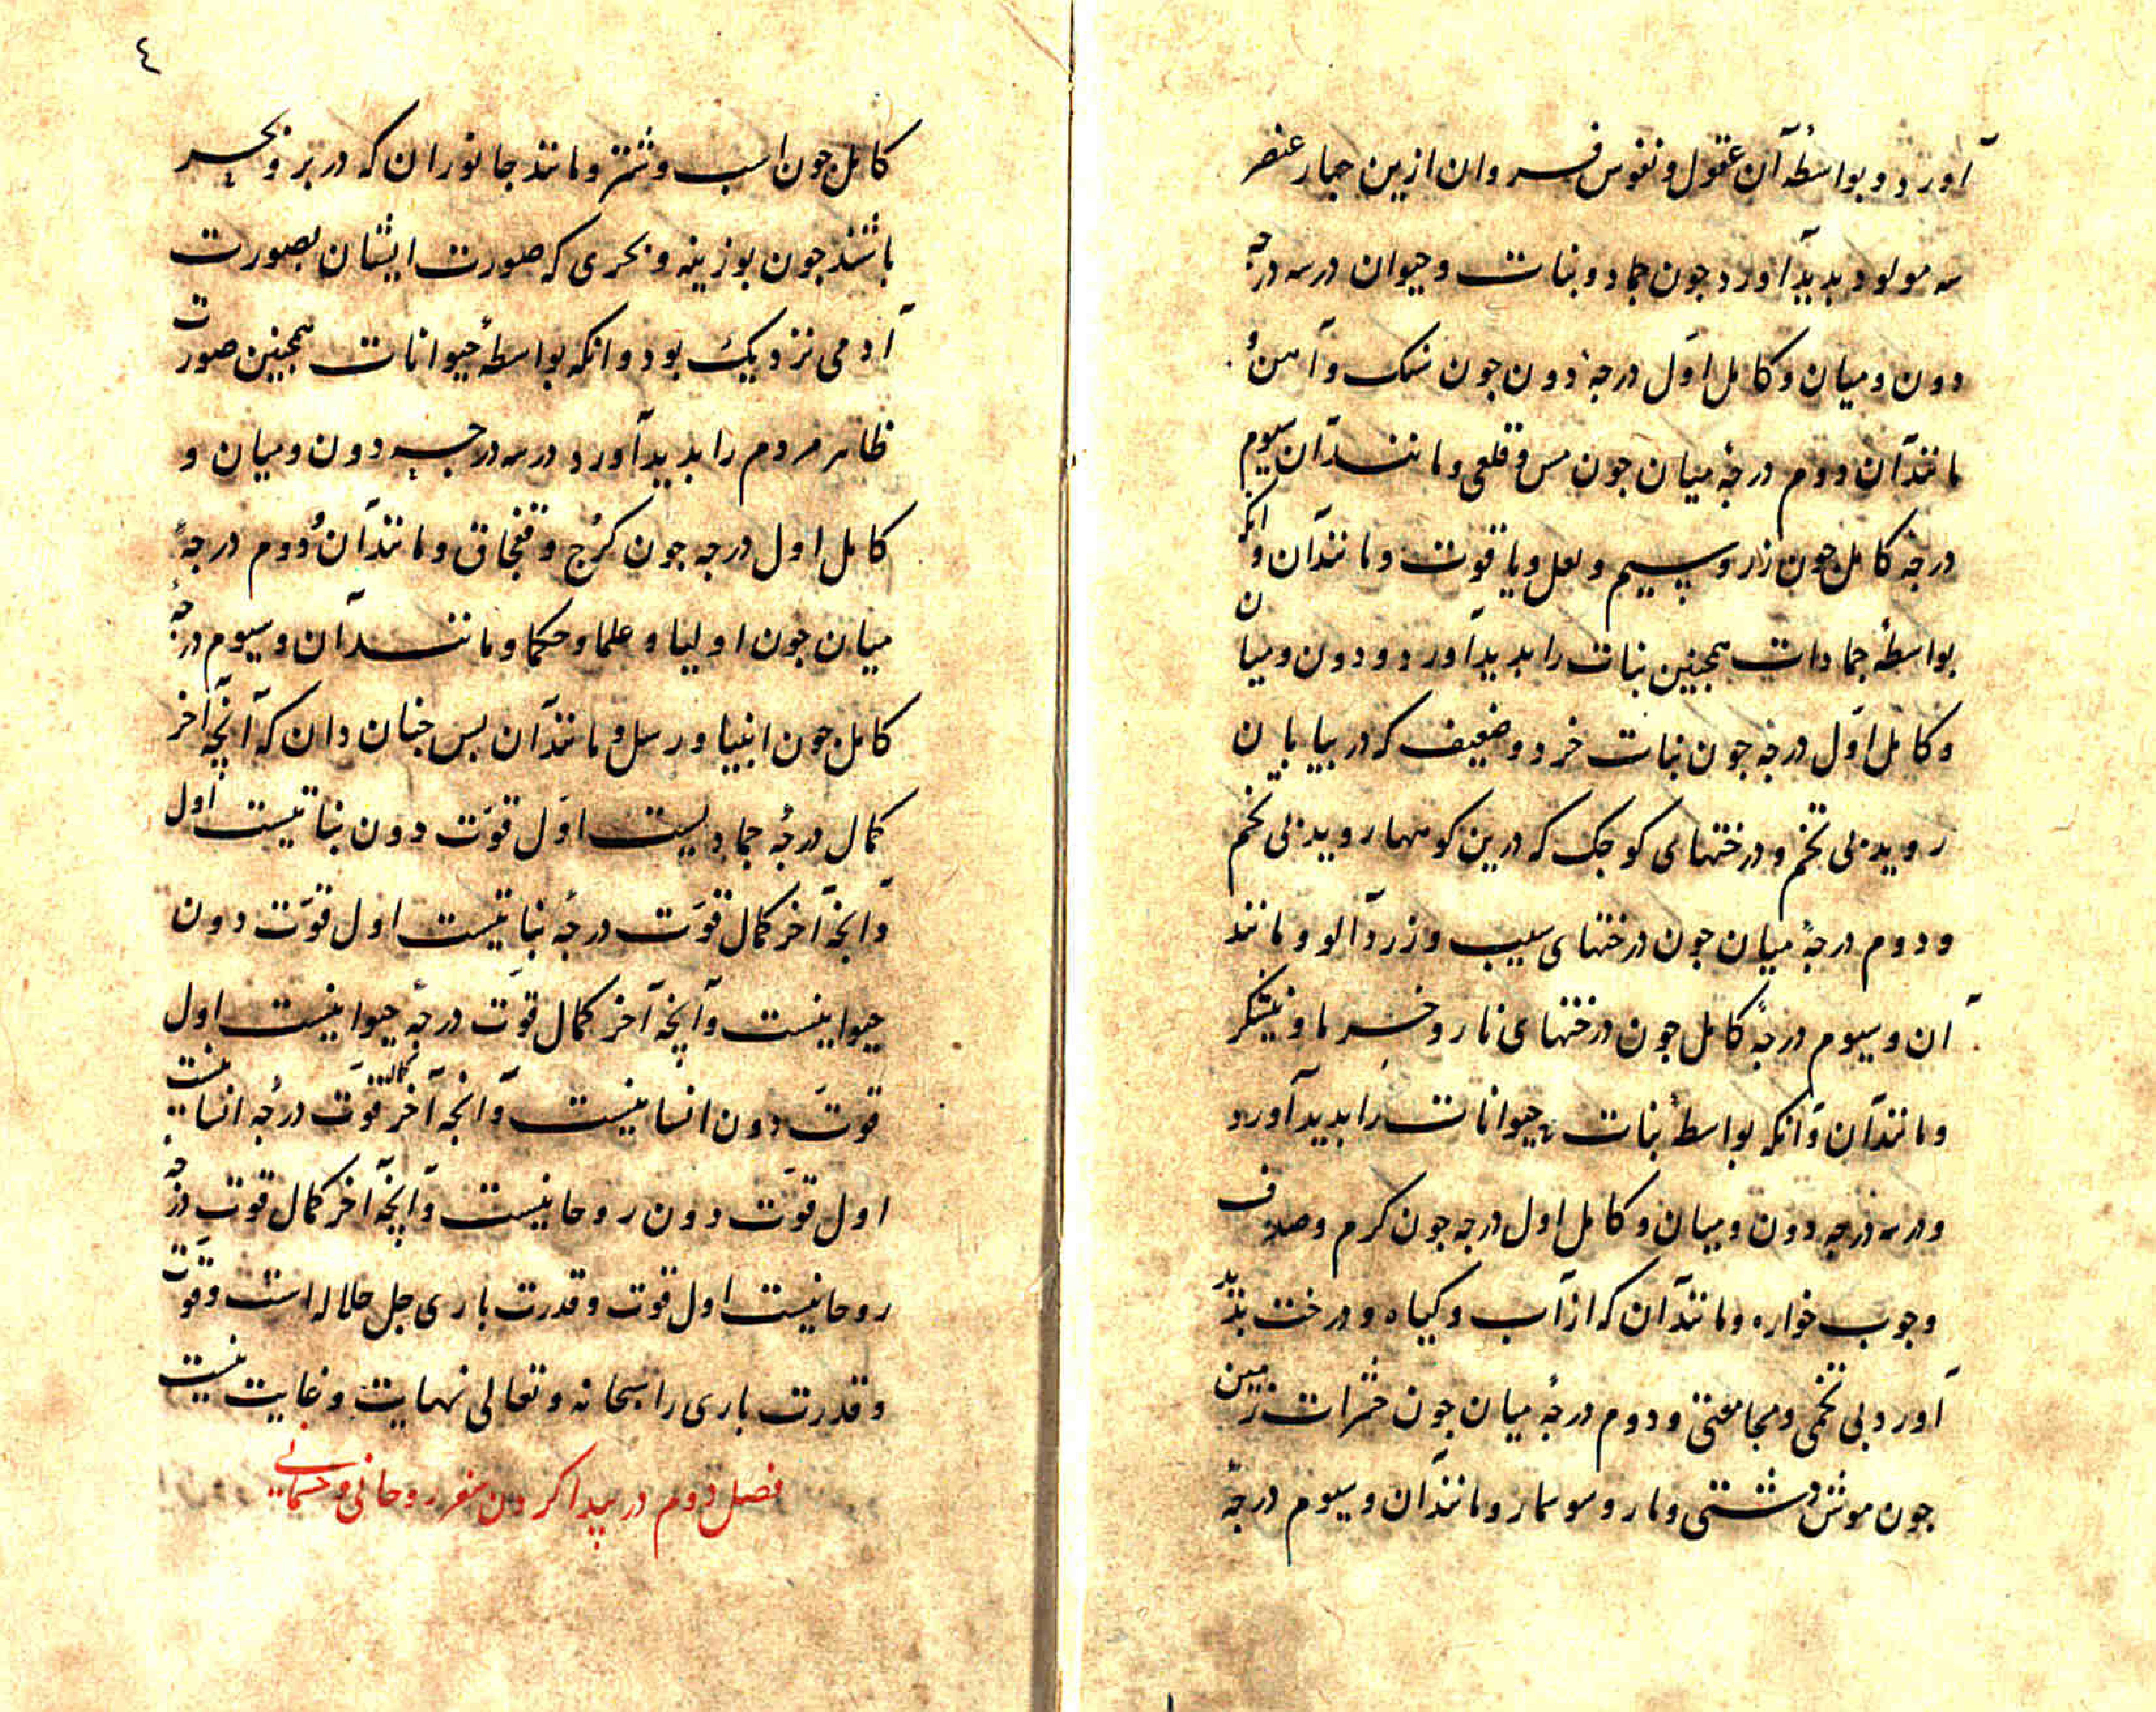 آورد و بواسطهٔ آن عقول و نفوس فروان ازین جهار عنصر
سه مولود بدید آورد جون جماد و نبات و حیوان در سه درجه
دون و میان و کامل اوّل درجهٔ دون جون سنک و آهن و
مانند آن دوم درجهٔ میان جون مس و قلعی و مانند آن سیوم
درجه کامل جون زر و سیم و لعل و یاقوت و مانند آن و انکه
بواسطهٔ جمادات همجنین نبات را بدید آورد و دون و میان
و کامل اوّل درجه جون نبات خرد و ضعیف که در بیابان
روید بی تخم و درختهای کوجک که درین کوهها روید بی تخم
و دوم درجهٔ میان جون درختهای سیب و زردآلو و مانند
آن و سیوم درجهٔ کامل جون درختهای نار و خرما و نیشکر
و مانند آن و آنکه بواسطهٔ نبات حیوانات را بدید آورد
و در سه درجه دون و میان و کامل اول درجه جون کرم و صدف
و جوب خواره و مانند آن که از آب و کیاه و درخت بدید
آورد بی تخمی و مجامعتی و دوم درجهٔ میان جون حشرات زمین
جون موش دشتی و مار و سوسمار و مانند آن و سیوم درجهٔ
٤
کامل جون اسب و شتر و مانند جانوران که در بر و بحر
باشند جون بوزینه و بحری که صورت ایشان بصورت
آدمی نزدیک بود و انکه بواسطهٔ حیوانات همجنین صورت
ظاهر مردم را بدید آورد در سه درجه دون و میان و
کامل اول درجه جون کرج و قفجاق و مانند آن دوم درجهٔ
میان جون اولیا و علما و حکما و مانند آن و سیوم درجهٔ
کامل جون انبیا و رسل و مانند آن بس جنان دان که آنچه آخر
کمال درجهٔ جمادیست اوّل قوّت دون نباتیست اول
و آنچه آخر کمال قوّت درجهٔ نباتیست اول قوّت دون
حیوانیست و آنچه آخر کمال قوّت درجهٔ حیوانیست اول
قوّت دون انسانیست و آنچه آخر کمال قوّت درجهٔ انسانیست
اول قوّت دون روحانیست و آنچه آخر کمال قوّت درجه
روحانیست اول قوت و قدرت باری جل جلاله است و قوّت
و قدرت باری را سبحانه و تعالی نهایت و غایت نیست
فصل دوم در پیدا کردن سفر روحانی و جسمانی